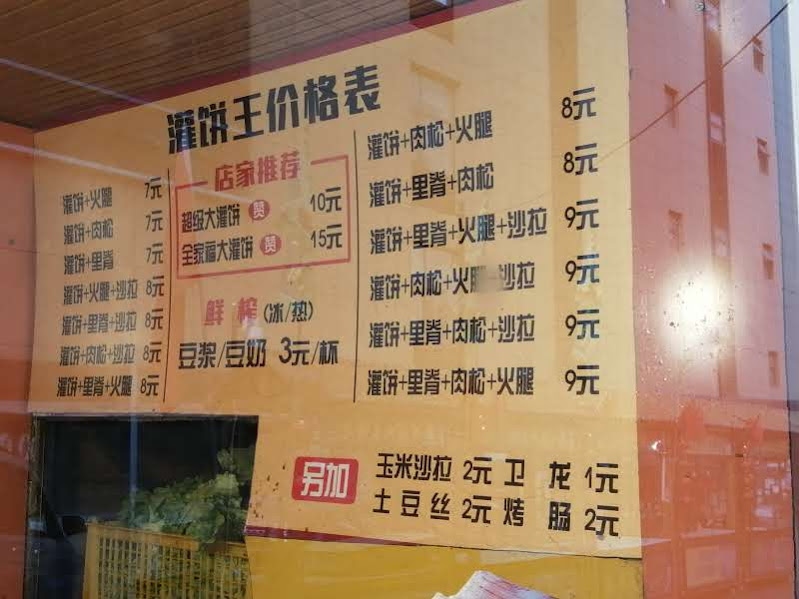 灌饼王价格表
灌饼+火腿 7元
灌饼+肉松 7元
灌饼+里脊 7元
灌饼+火腿+沙拉 8元
灌饼+里脊+沙拉 8元
灌饼+肉松+沙拉 8元
灌饼+里脊+火腿 8元
店家推荐
超级大灌饼 赞 10元
全家福大灌饼 赞 15元
鲜榨(冰/热)
豆浆/豆奶 3元/杯
灌饼+肉松+火腿 8元
灌饼+里脊+肉松 8元
灌饼+里脊+火腿+沙拉 9元
灌饼+肉松+火腿 沙拉 9元
灌饼+里脊+肉松+沙拉 9元
灌饼+里脊+肉松+火腿 9元
另加
玉米沙拉 2元 卫龙 1元
土豆丝 2元 烤肠 2元